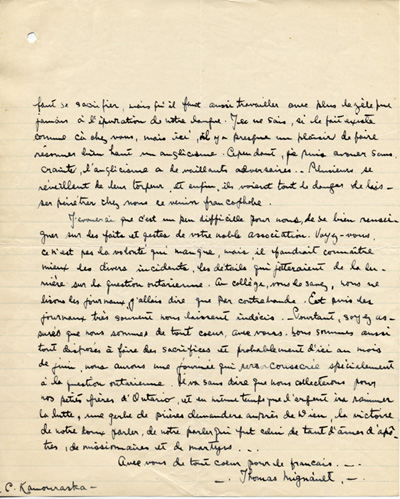 faut se sacrifier, mais qu'il faut aussi travailler avec plus de zèle que
jamais à l'épuration de notre langue. Je ne sais, si le fait existe
comme çà chez vous, mais ici, il y a presque un plaisir de faire
résonner bien haut un anglicisme. Cependant, je puis avouer sans
crainte, l'anglicisme a de vaillants adversaires... Plusieurs se
réveillent de leur torpeur, et enfin, ils voient tout le danger de lais-
ser pénétrer chez nous ce venin francophobe.
J'avouerai que c'est un peu difficile pour nous, de bien rensei-
gner sur des faits et gestes de votre noble association. Voyez-vous,
ce n'est pas la volonté qui manque, mais il faudrait connaître
mieux les divers incidents, les détails qui jetteraient de la lu-
mière sur la question ontarienne. Au collège, vous de savez, nous ne
lisons les journaux, j'allais dire que par contrebande. Et puis des
journaux très souvent nous laissent indécis. Pourtant, soyez as-
surés que nous sommes de tout coeur, avec vous. Nous sommes aussi
tout disposés à faire des sacrifices et probablement d'ici au mois
de juin, nous aurons une journée qui sera consacrée spécialement
à la question ontarienne. Il va sans dire que nous collecterons pour
nos petits frères d'Ontario, et en même temps que l'argent ira ranimer
la lutte, une gerbe de prières demandera auprès de Dieu, la victoire
de notre bon parler, de notre parler qui fut celui de tant d'âmes d'apô-
tres, de missionnaires et de martyrs...
Avec vous de tout coeur pour le français...
Thomas Mignault
C. Kamouraska -